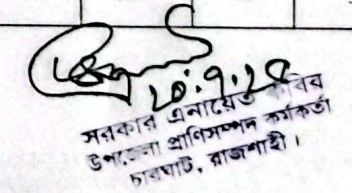 ২০.৭.২৫
সরকার এনায়েত কবির
উপজেলা প্রাণিসম্পদ কর্মকর্তা
চারঘাট, রাজশাহী।